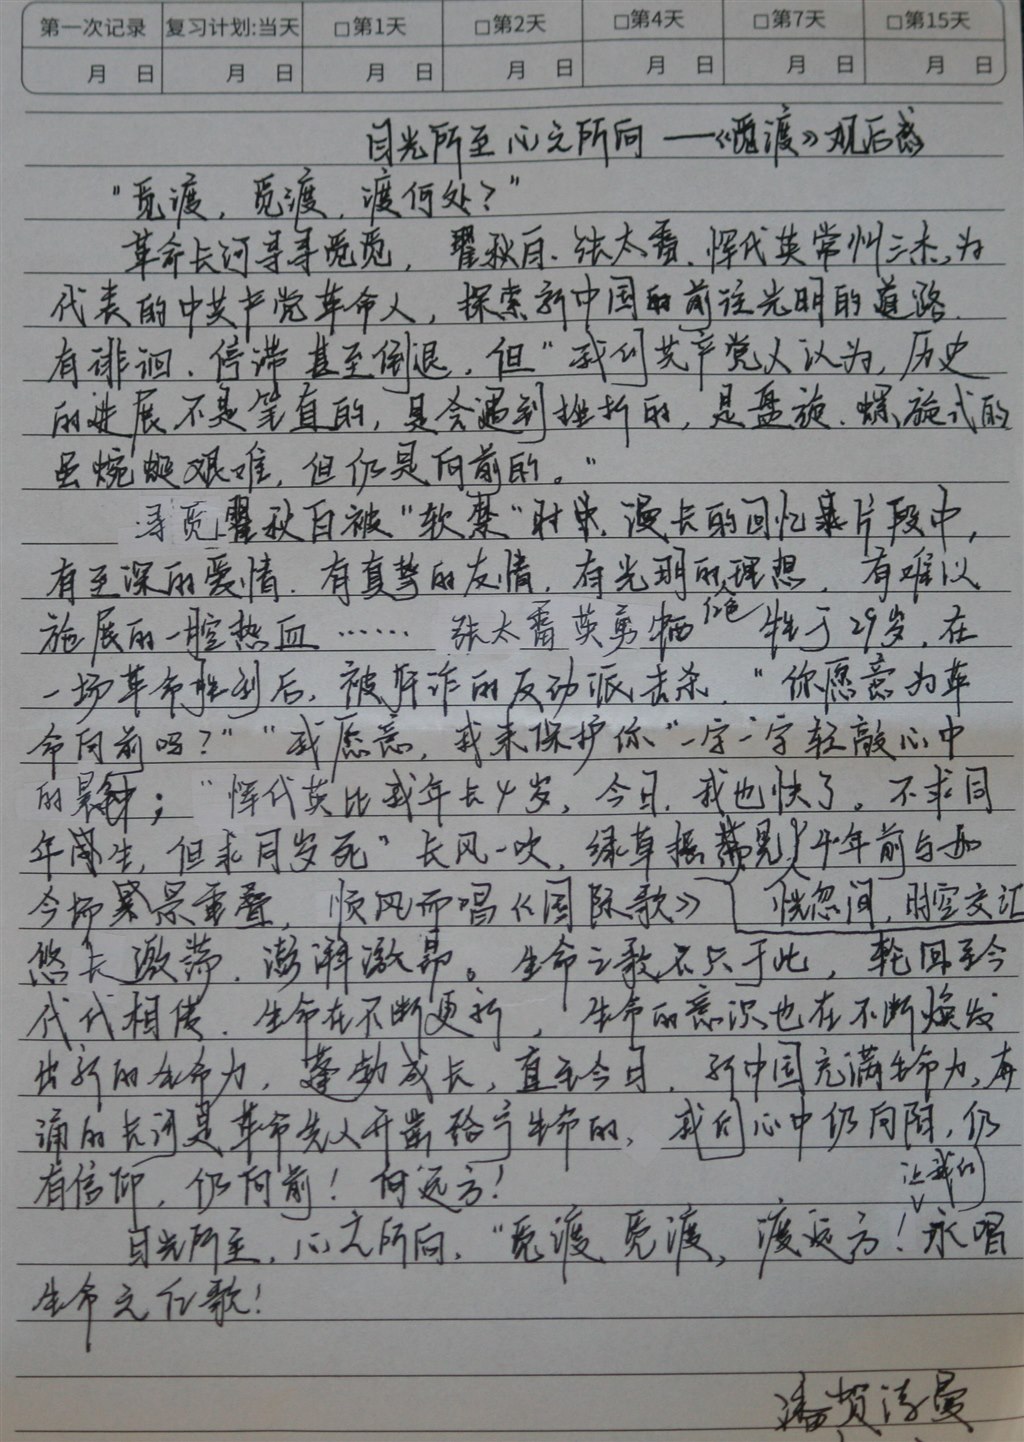 第一次记录 复习计划:当天 □第1天 □第2天 □第4天 □第7天 □第15天
月 日 月 日 月 日 月 日 月 日 月 日 月 日
目光所至 心之所向 ——《觅渡》观后感
"觅渡，觅渡，渡何处？"
革命长河寻寻觅觅，瞿秋白、张太雷、恽代英常州三杰为
代表的中共产党革命人，探索新中国的前往光明的道路，
有徘徊、停滞甚至倒退，但"我们共产党人认为，历史
的进展不是笔直的，是会遇到挫折的，是盘旋、螺旋式的
虽蜿蜒艰难，但仍是向前的。"
寻觅瞿秋白被"软禁"时，漫长的回忆片段中，
有至深的爱情，有真挚的友情，有光明的理想，有难以
施展的一腔热血……张太雷英勇牺牲于29岁，在
红色
一场革命胜利后，被奸诈的反动派击杀，"你愿意为革
命向前吗？""我愿意，我来保护你"一字一字轻敲心中
的警钟；"恽代英比我年长4岁，今日，我也快了。不求同
年同生，但求同岁死"长风一吹，绿草摇，年前与如
今场景重叠，顺风而唱《国际歌》 恍忽间，时空交汇
悠长激荡，澎湃激昂。生命之歌不只于此，轮回至今
代代相传，生命在不断更新，生命的意识也在不断焕发
出新的生命力，蓬勃成长，直至今日，新中国充满生命力，奔
涌的长河是革命先人开凿给予生命的，我们心中仍向阳，仍
有信仰，仍向前！向远方！
让我们
目光所至，心之所向，"觅渡，觅渡，渡远方！永唱
生命之红歌！
潘贺